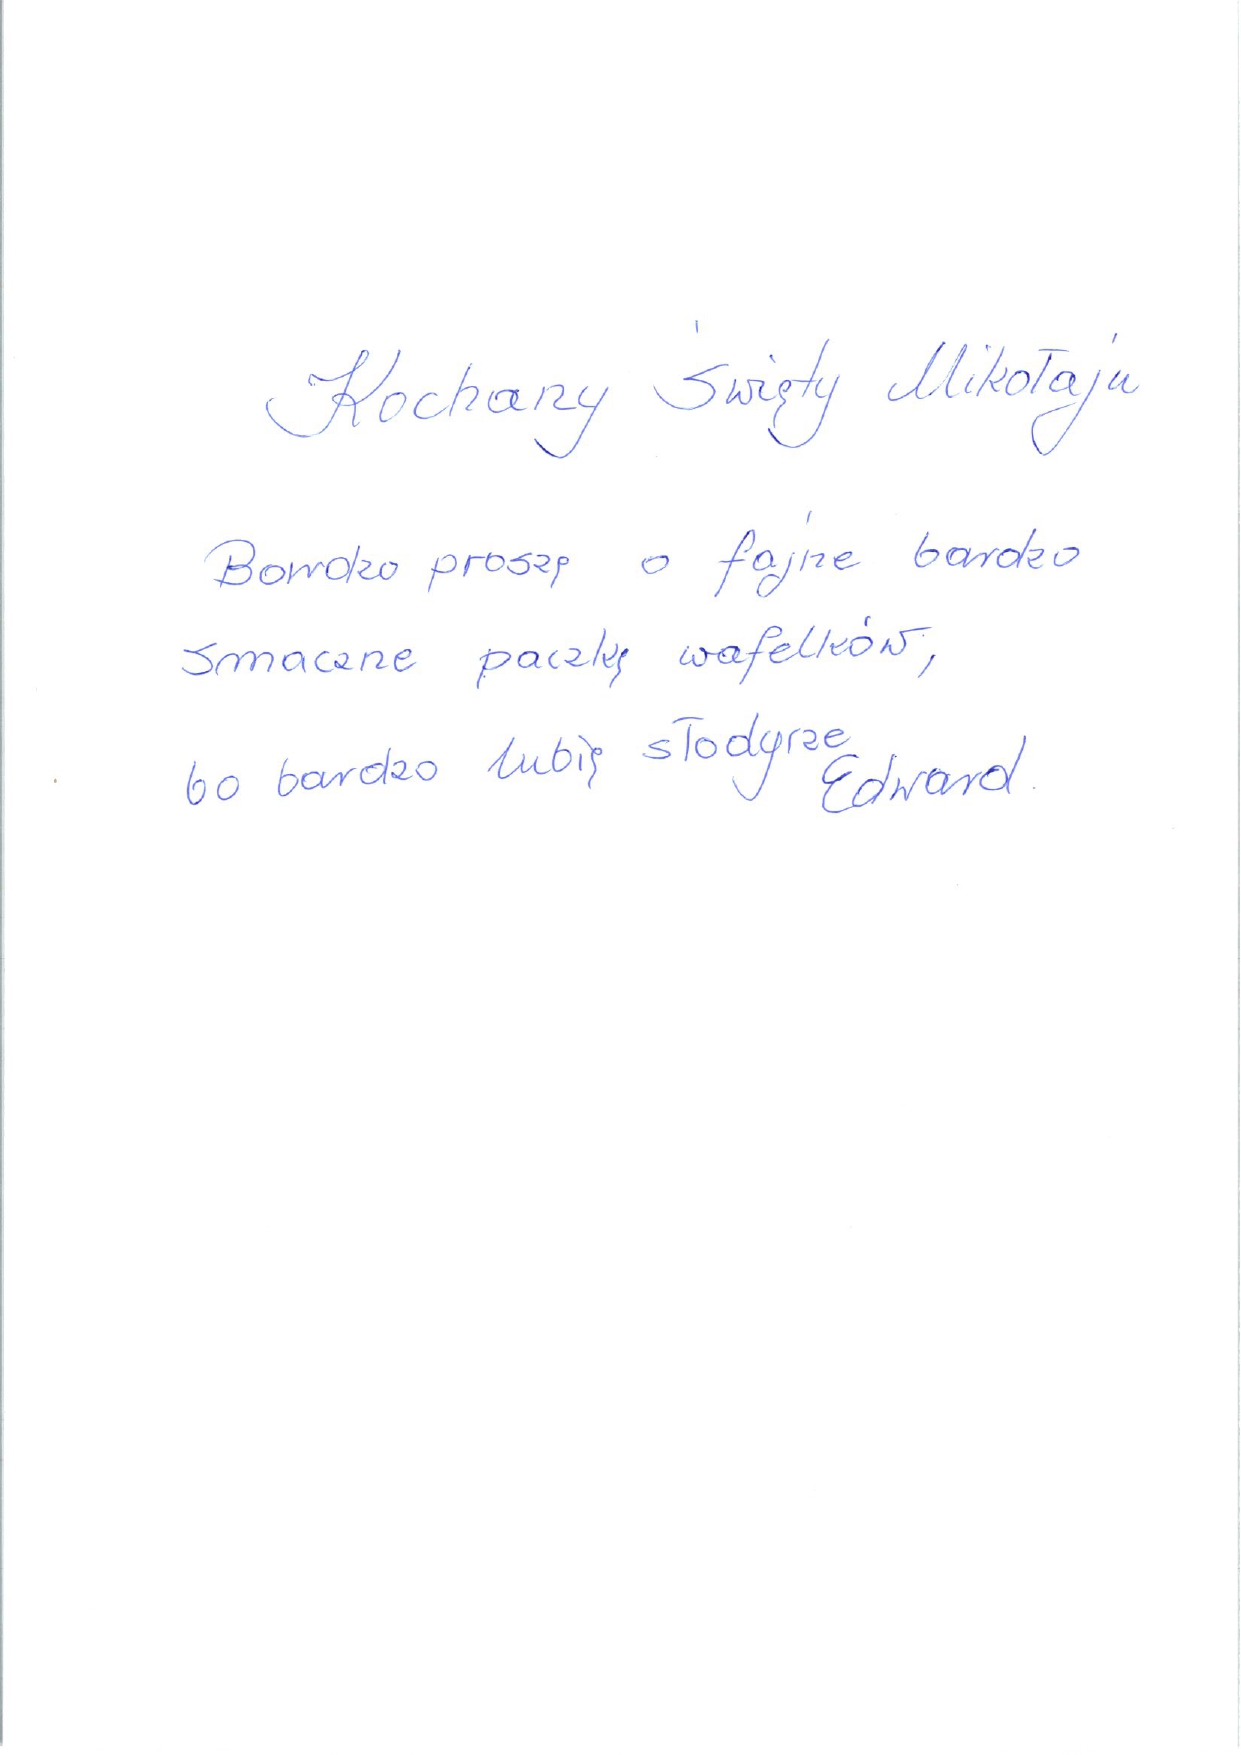 Kochany Święty Mikołaju
Bardzo proszę o fajne bardzo
smaczne paczkę wafelków,
bo bardzo lubię słodycze
Edward.